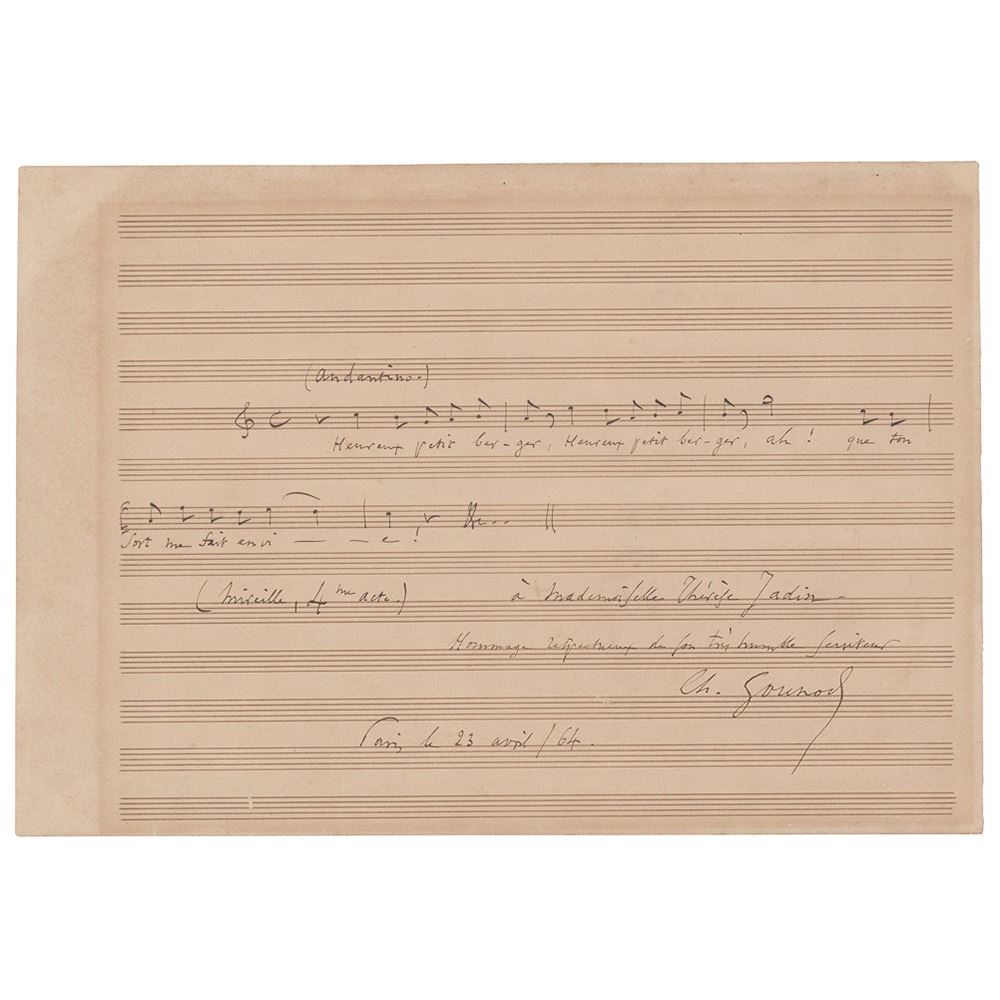 (Andantino.)
Heureux petit ber-ger, Heureux petit ber-ger, ah! que ton
Sort me fait envi — — e!
(Mireille, 4me acte.) à Mademoiselle Thérèse Jadin -
Hommage respectueux de son très humble serviteur
Ch. Gounod
Paris le 23 avril / 64.